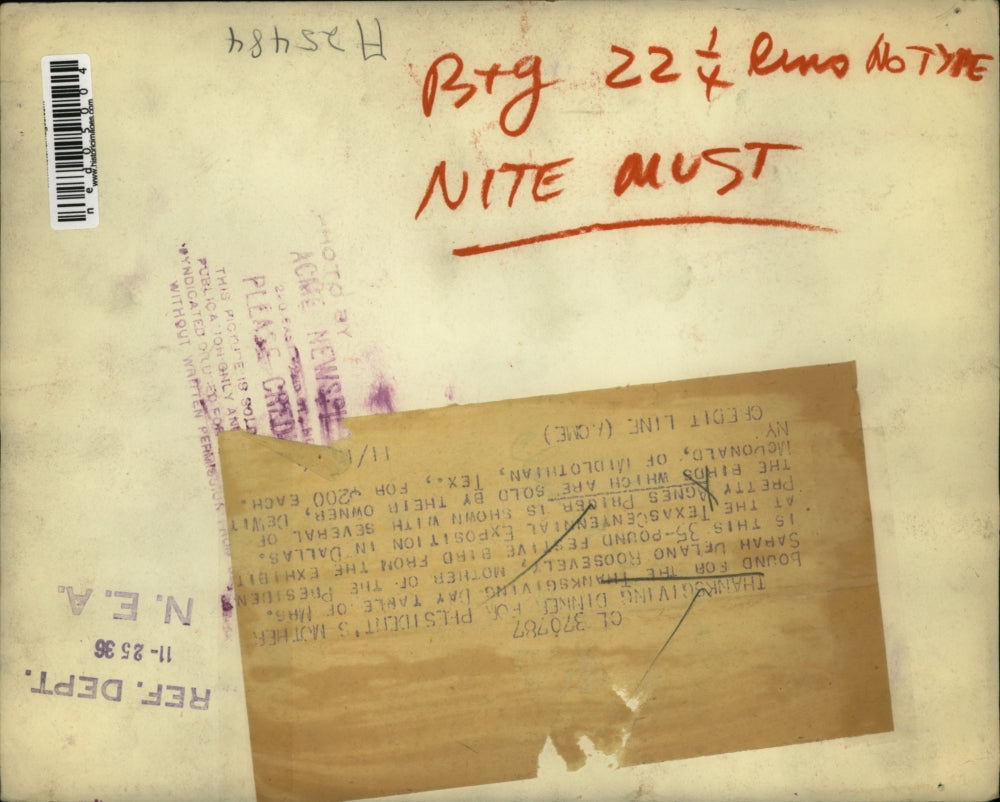 A25484
B+g 22 1/4 lens NO TYPE
NITE MUST
ned05004
www.historicimages.com
PHOTO BY
ACME NEWS
PLEASE CRED
THIS PICTURE IS SOLD
PUBLICATION ONLY AN
SYNDICATED OR USED FOR
WITHOUT WRITTEN PERMISSION FROM
CL 370787
THANKSGIVING DINNER FOR PRESIDENT'S MOTHER
BOUND FOR THE THANKSGIVING DAY TABLE OF MRS.
SARAH DELANO ROOSEVELT, MOTHER OF THE PRESIDEN
IS THIS 35-POUND FESTIVE BIRD FROM THE EXHIBIT
AT THE TEXASCENTENNIAL EXPOSITION IN DALLAS.
PRETTY AGNES PRIGER IS SHOWN WITH SEVERAL OF
THE BIRDS WHICH ARE SOLD BY THEIR OWNER, DEWIT
MCDONALD, OF MIDLOTHIAN, TEX., FOR $200 EACH.
NY
CREDIT LINE (ACME)
N.E.A.
11-25 36
REF. DEPT.